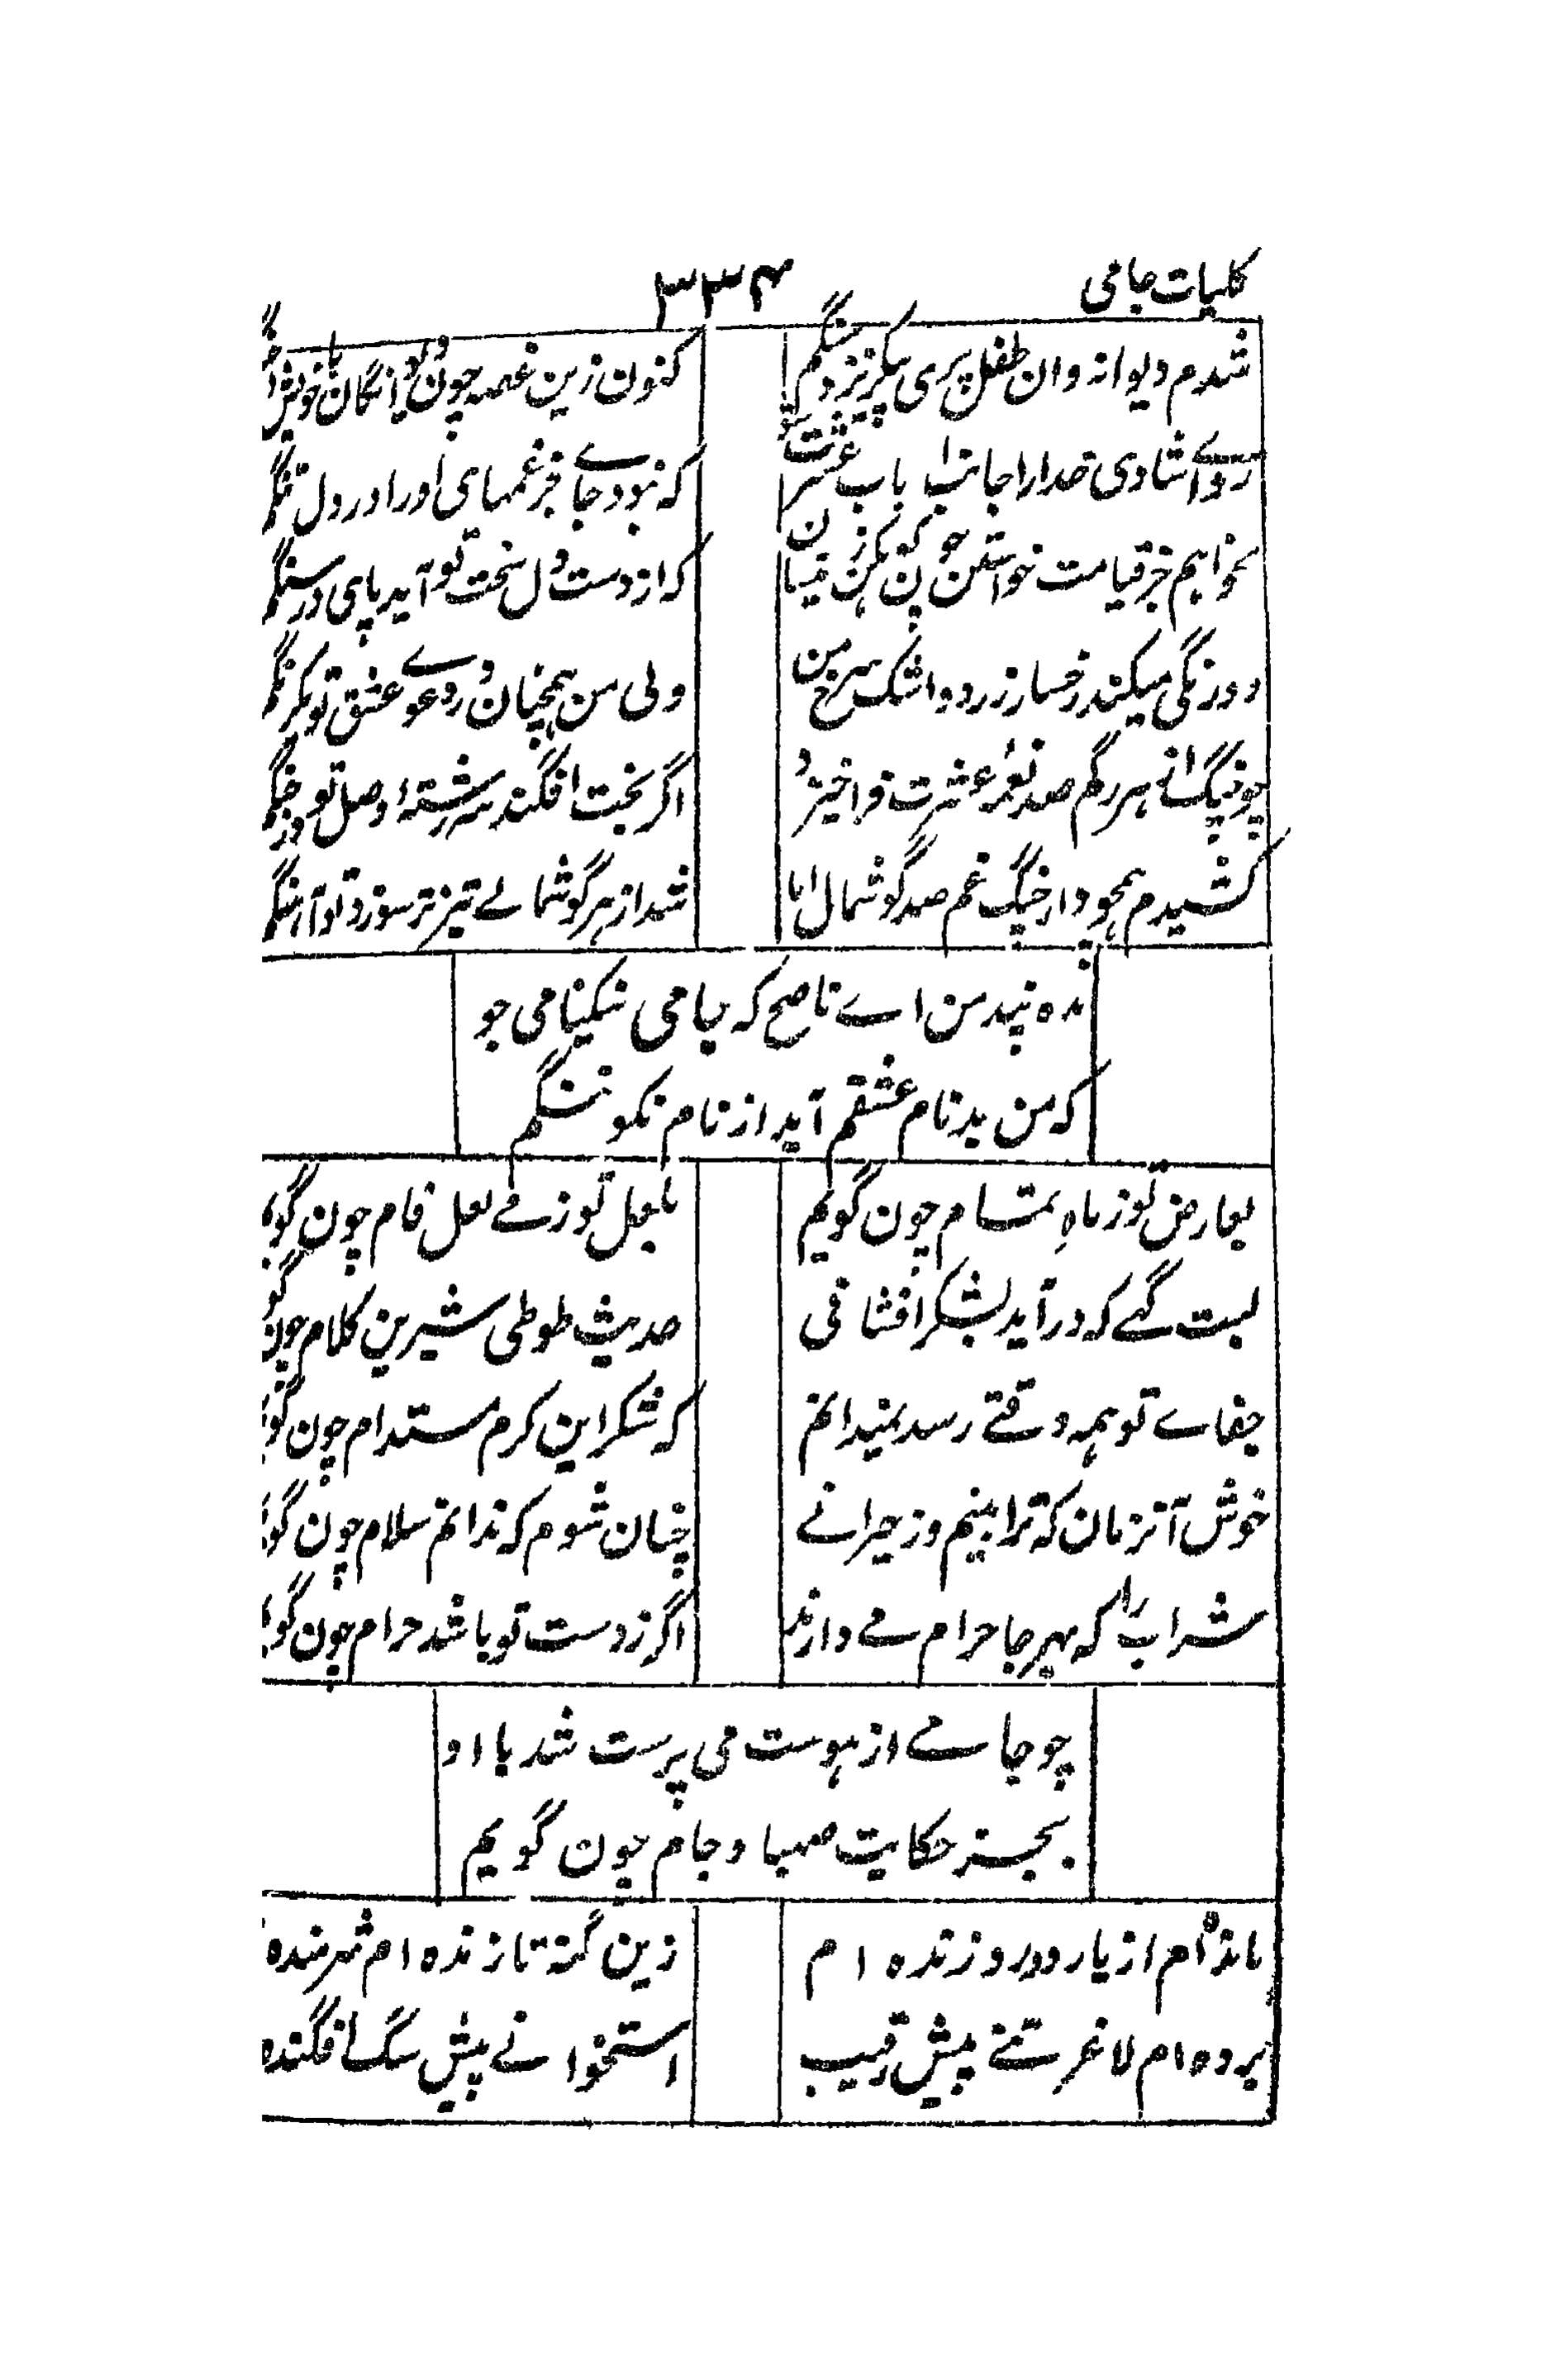 کلیات جامی
۳۳۴
شدم دیوانه وان طفل پری پیکر نزد سنگم
کنون زین غصه چون دیوانگان با خویش
روے شادی خدارا جانب ارباب عشرت شو
که نبود جاے جز غمهای او را در دل تنگم
نخواهم جز قیامت خواستن
که از دست دل سخت تو آید پای در سنگم
دورنگی میکند رخسار زرد و اشک سرخ من
ولی من همچنان در دعوے عشق تو یکرنگم
چو چنگ از هر رگم صد نغمه عشرت فرا خیزد
اگر بخت افکند سر رشته وصل تو در چنگم
کشیدم همچو دار چنگ غم صد گوشمال اما
شد از هر گوشمالے تیزتر سوز تو آهنگم
مده پند من اے ناصح که جامی نیکنامی جو
که من بدنام عشقم آید از نام نکو ننگم
بعارض تو ز ماه تمام چون گویم
بلعل تو ز مے لعل فام چون گویم
لبت گہے که درآید بشکر افشانی
حدیث طوطی شیرین کلام چون گو
جفاے تو همه وقتے رسد نمیدانم
که شکر این کرم مستدام چون گو
خوش آنزمان که ترا بینم و ز حیرانے
چنان شوم که ندانم سلام چون گو
شراب را که بهر جا حرام مے دارند
اگر ز دست تو باشد حرام چون گو
چو جامے از هوست می پرست شد با او
بجز حکایت صهبا و جام چون گویم
مانده ام از یار دور و زنده ام
زین گنه تا زنده ام شرمنده
برده ام لاغر تنے پیش رقیب
استخوانے پیش سگ افگنده